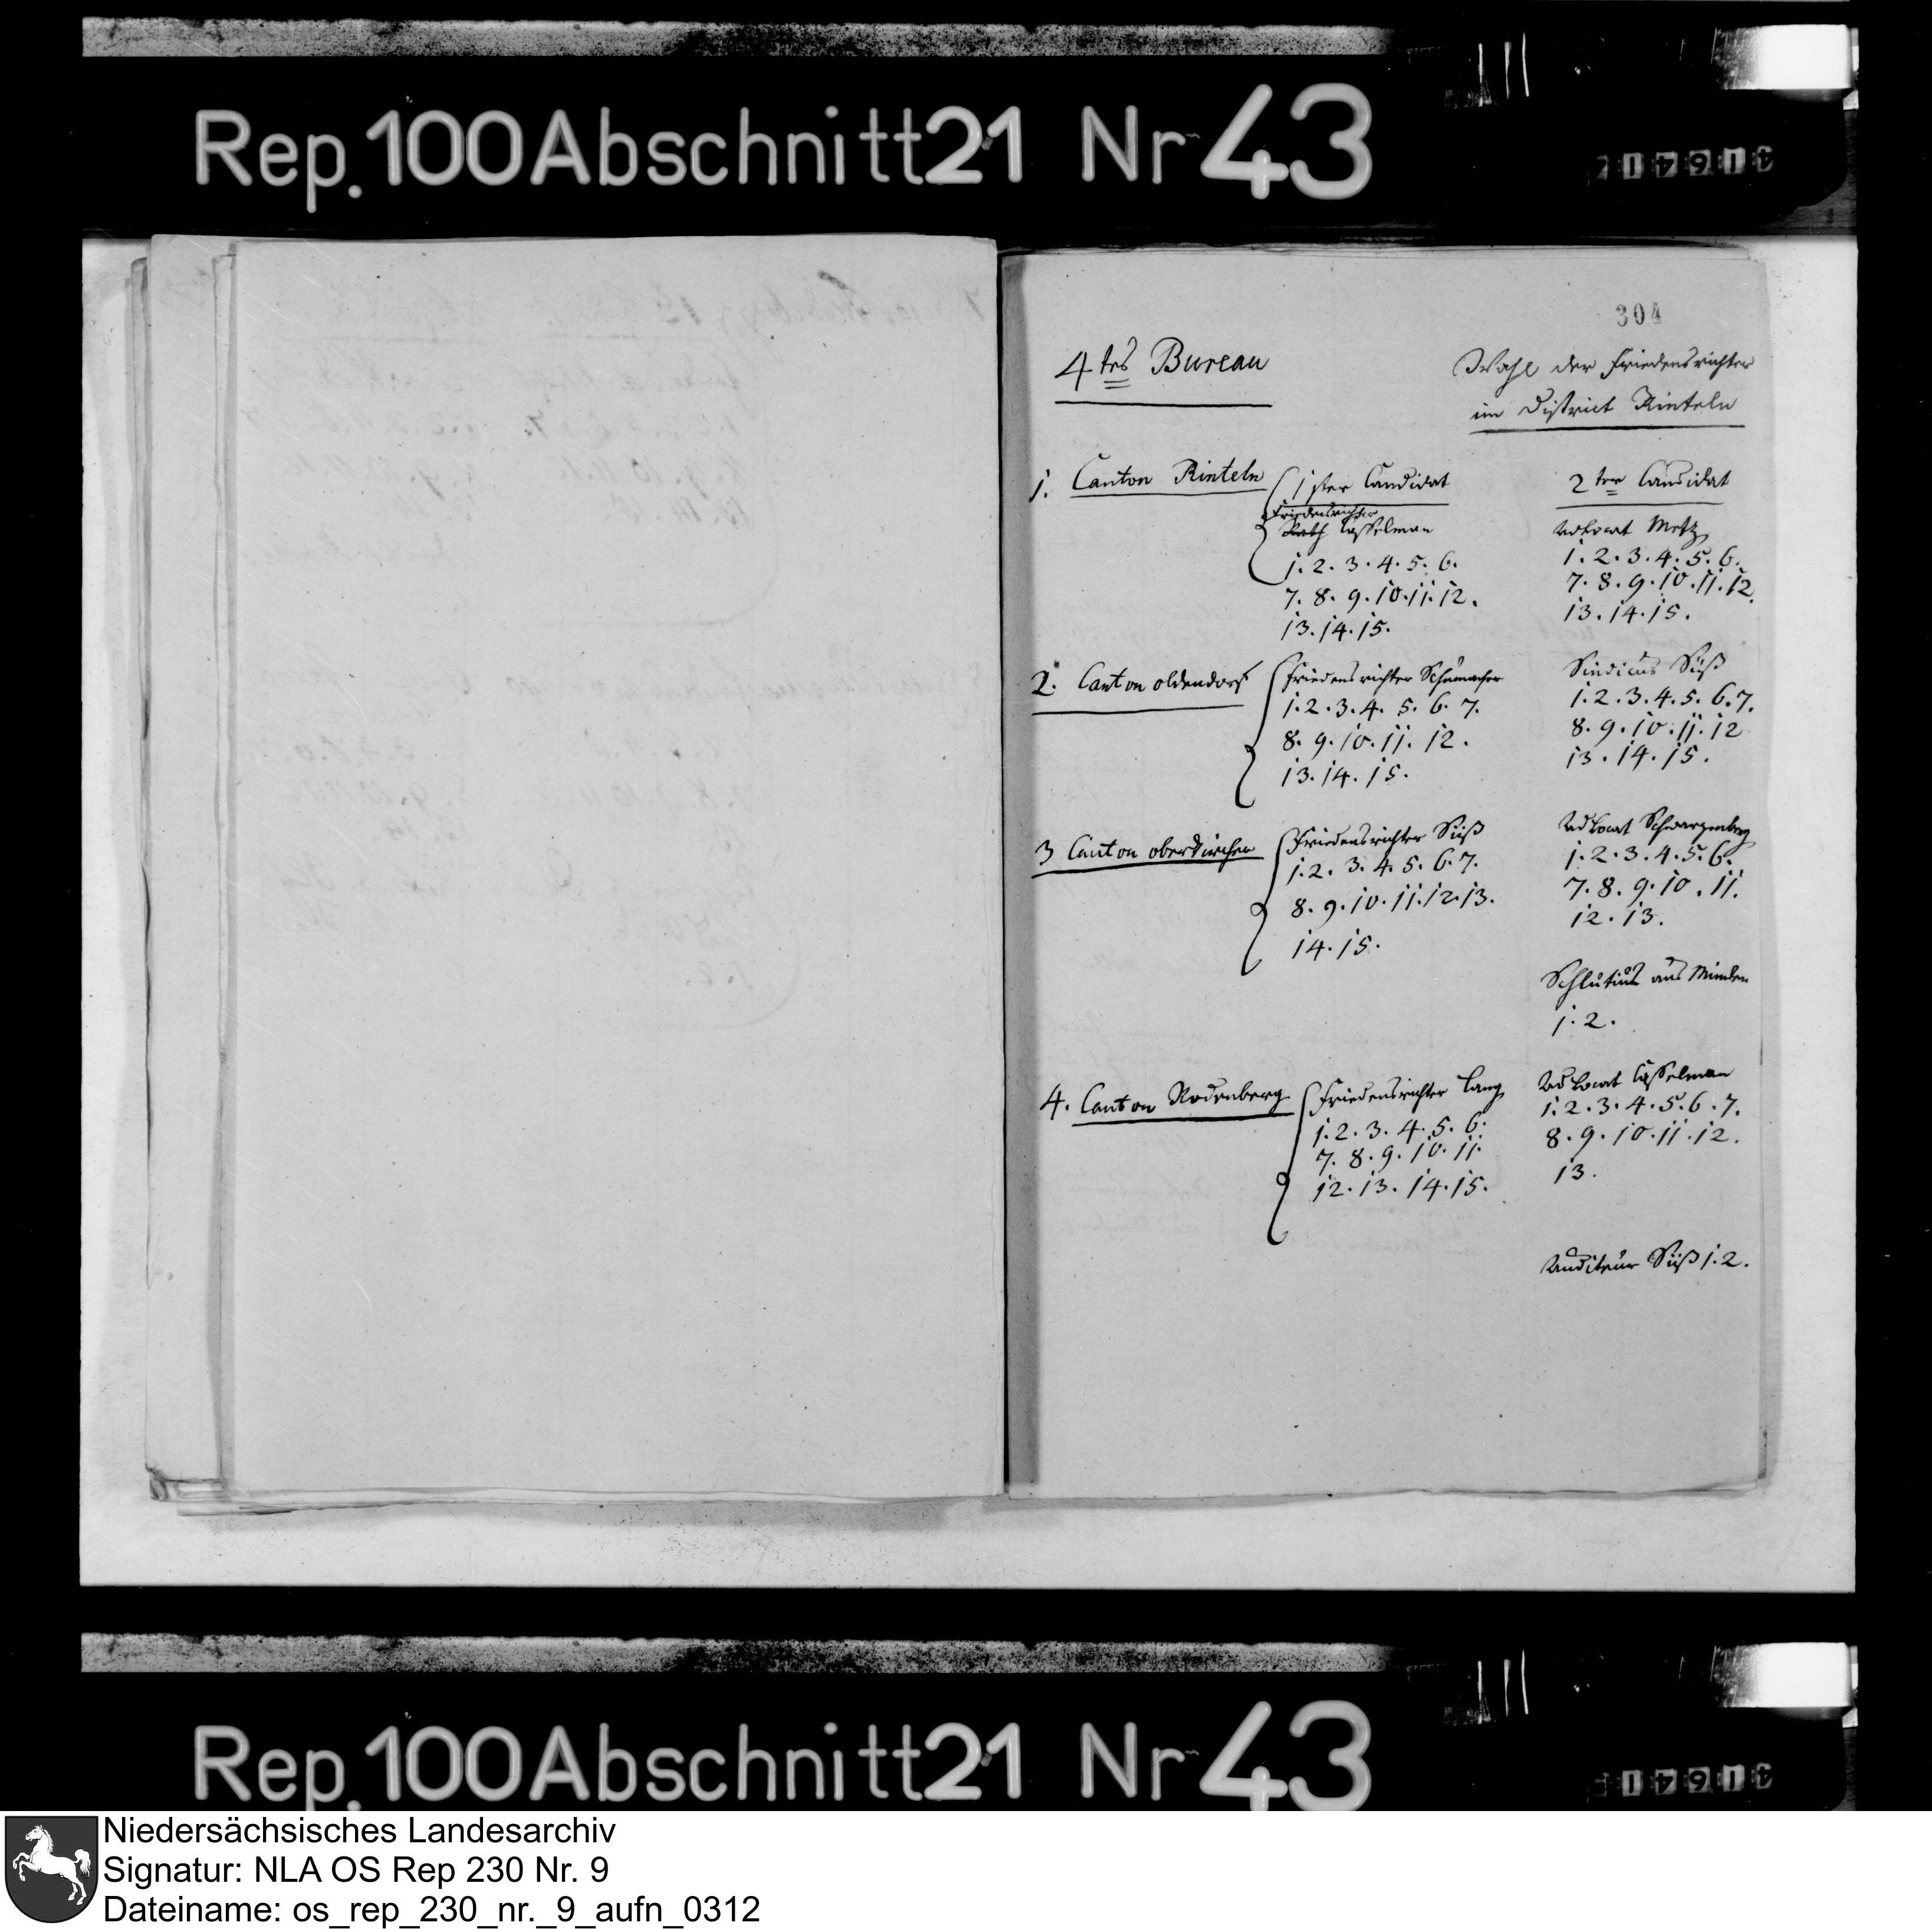 Rep. 100 Abschnitt 21 Nr 43
304
4tes Bureau
Wahl der Friedensrichter
im District Rinteln
1. Canton Rinteln
1ster Candidat
2ter Candidat
Friedensrichter
Rath Casselman
1. 2. 3. 4. 5. 6.
7. 8. 9. 10. 11. 12.
13. 14. 15.
Advocat Metz
1. 2. 3. 4. 5. 6.
7. 8. 9. 10. 11. 12.
13. 14. 15.
2. Canton oldendorf
Friedensrichter Schumacher
1. 2. 3. 4. 5. 6. 7.
8. 9. 10. 11. 12.
13. 14. 15.
Sindicus Süß
1. 2. 3. 4. 5. 6. 7.
8. 9. 10. 11. 12
13. 14. 15.
3 Canton obernkirchen
Friedensrichter Süß
1. 2. 3. 4. 5. 6. 7.
8. 9. 10. 11. 12. 13.
14. 15.
Advocat Schwarzenberg
1. 2. 3. 4. 5. 6.
7. 8. 9. 10. 11.
12. 13.
Schlutius aus Minden
1. 2.
4. Canton Rodenberg
Friedensrichter Lang
1. 2. 3. 4. 5. 6.
7. 8. 9. 10. 11.
12. 13. 14. 15.
Advocat Casselman
1. 2. 3. 4. 5. 6. 7.
8. 9. 10. 11. 12.
13.
Auditeur Süß 1. 2.
Rep. 100 Abschnitt 21 Nr 43
Niedersächsisches Landesarchiv
Signatur: NLA OS Rep 230 Nr. 9
Dateiname: os_rep_230_nr._9_aufn_0312